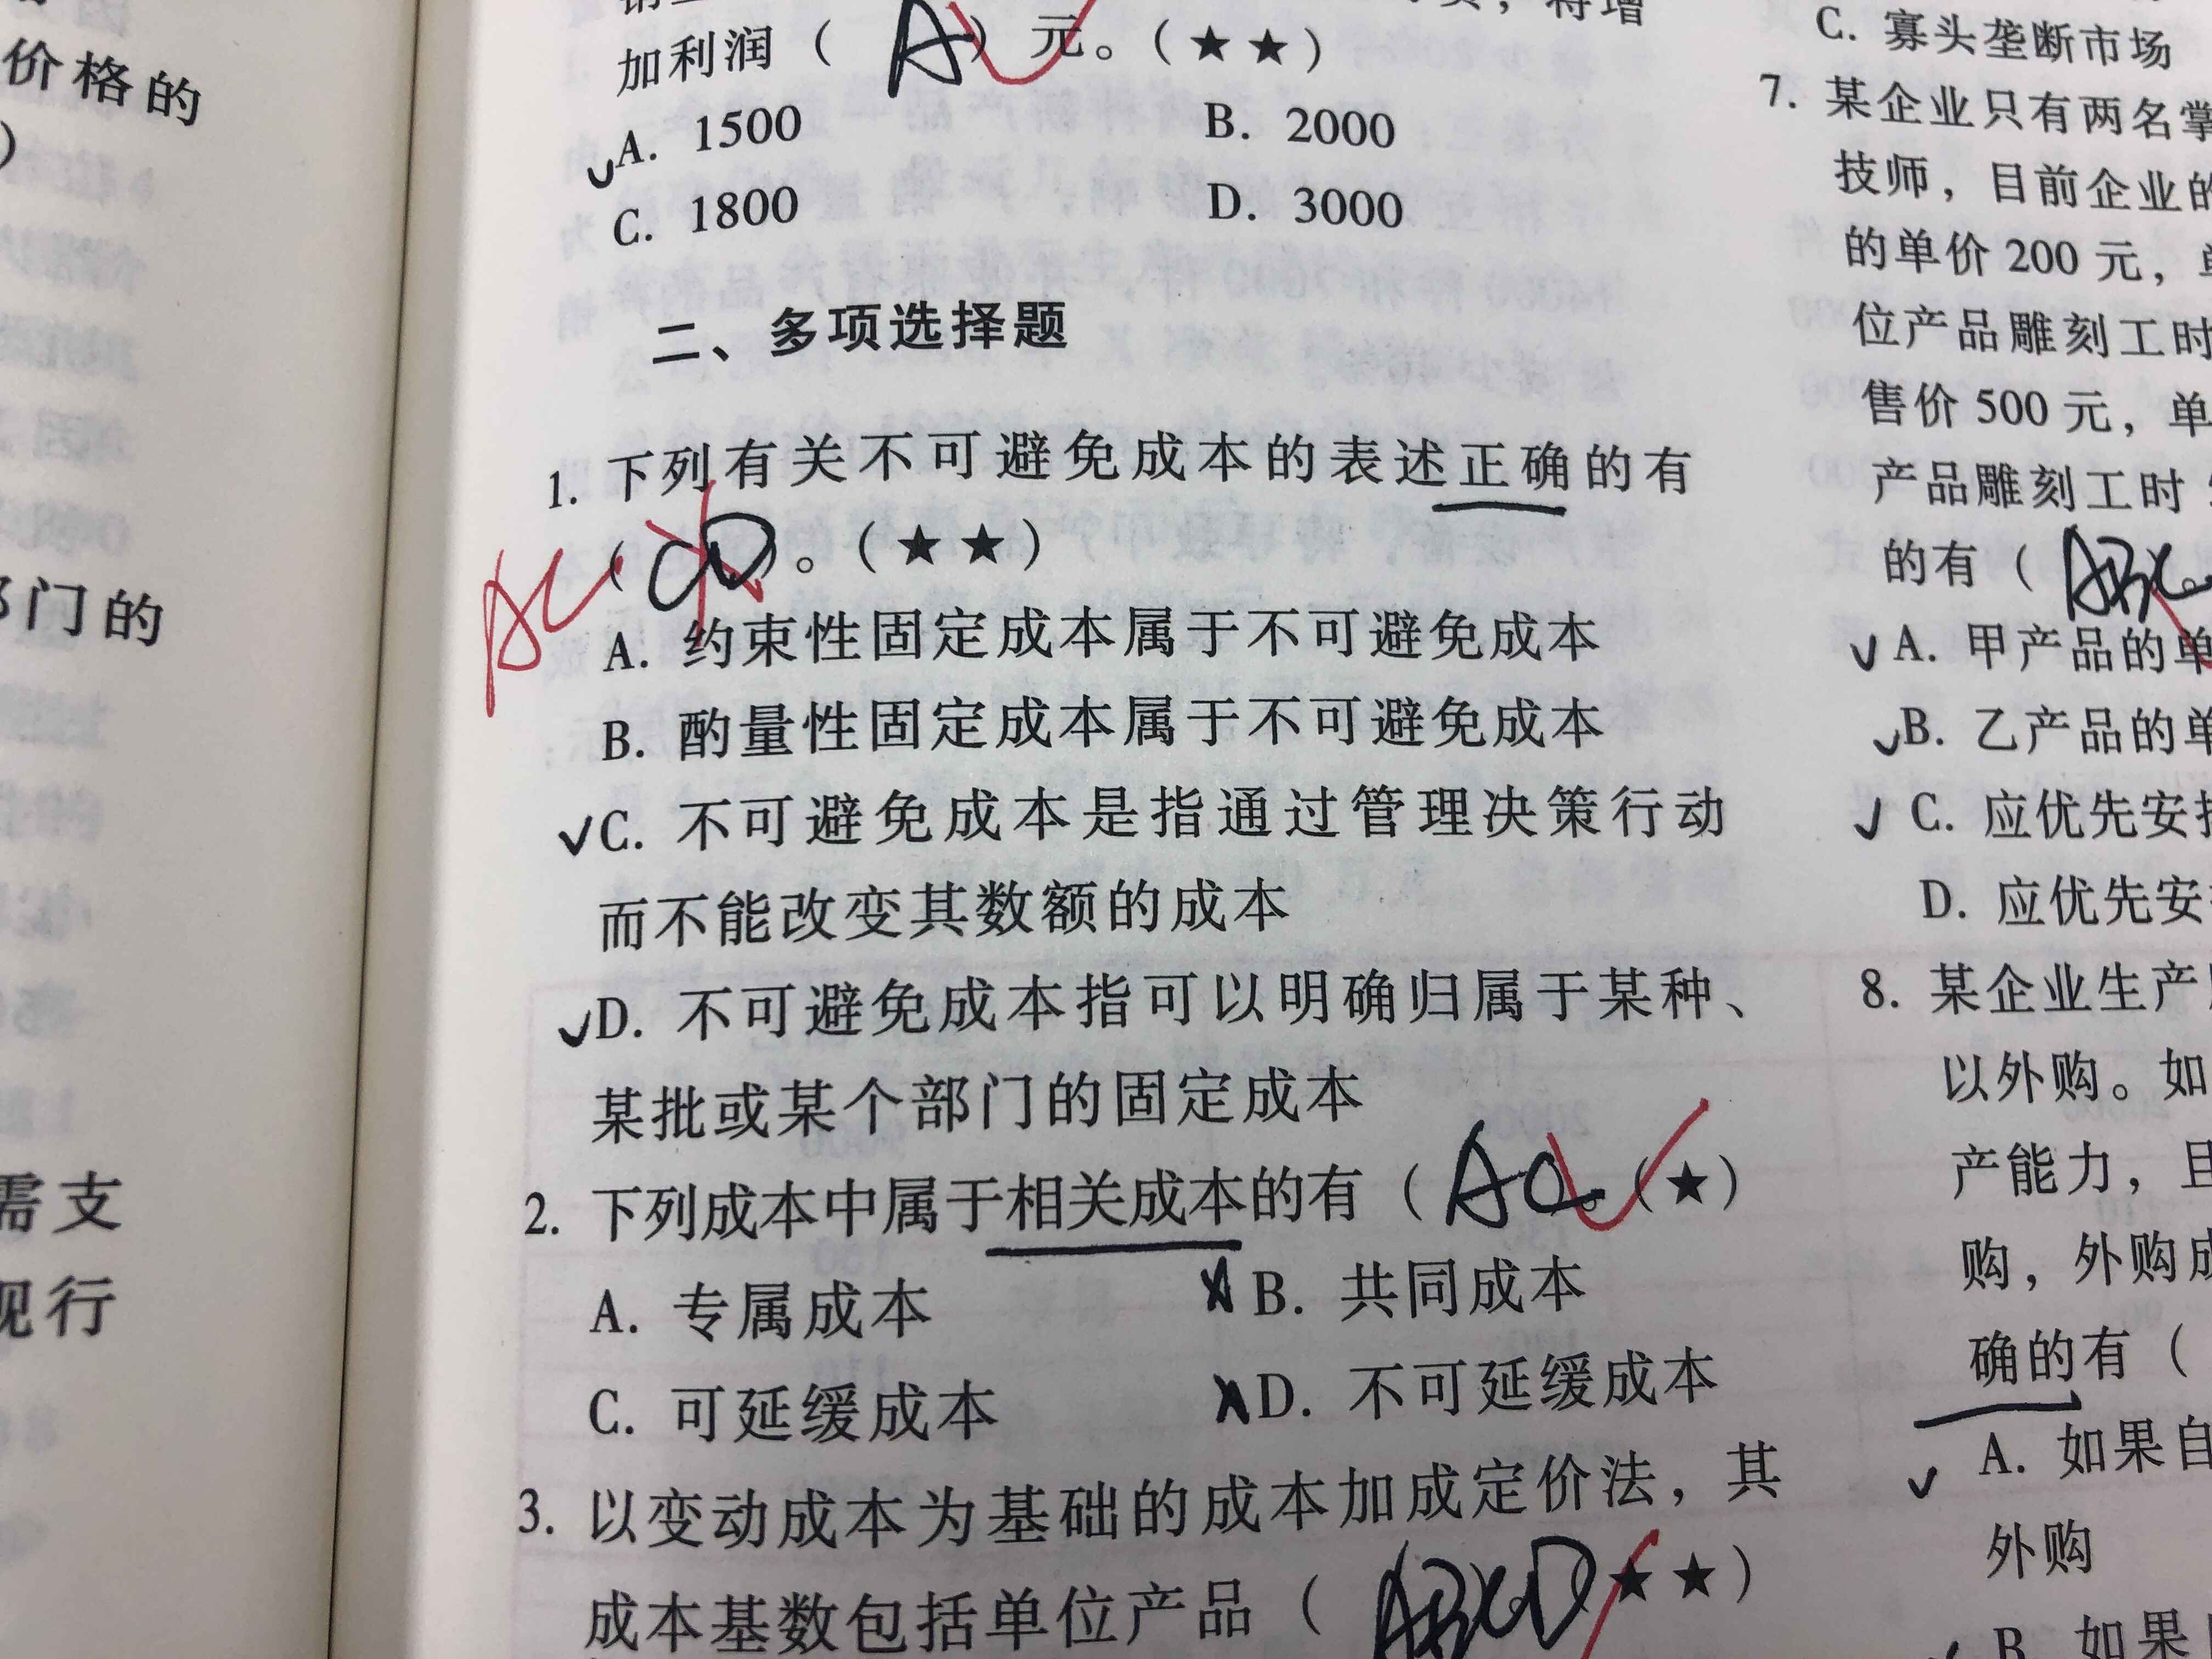 价格的
)
部门的
需支
现行
加利润（ A ）元。（★★）
A. 1500
B. 2000
C. 1800
D. 3000
二、多项选择题
1. 下列有关不可避免成本的表述正确的有
（ CD ）。（★★）
AC
A. 约束性固定成本属于不可避免成本
B. 酌量性固定成本属于不可避免成本
C. 不可避免成本是指通过管理决策行动
而不能改变其数额的成本
D. 不可避免成本指可以明确归属于某种、
某批或某个部门的固定成本
2. 下列成本中属于相关成本的有（ AC ）。（★）
A. 专属成本
B. 共同成本
C. 可延缓成本
D. 不可延缓成本
3. 以变动成本为基础的成本加成定价法，其
成本基数包括单位产品（ ABCD ★★）
C. 寡头垄断市场
7. 某企业只有两名掌
技师，目前企业的
的单价 200 元，单
位产品雕刻工时
售价 500 元，单
产品雕刻工时
的有（ ABC
A. 甲产品的单
B. 乙产品的单
C. 应优先安排
D. 应优先安
8. 某企业生产
以外购。如
产能力，且
购，外购成
确的有（
A. 如果自
外购
B. 如果